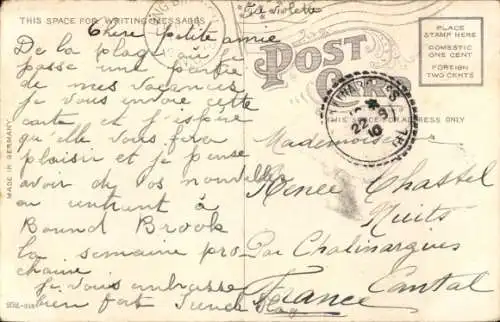 THIS SPACE FOR WRITING MESSAGES
Via violette
Chère petite amie
De la plage où je
passe une partie
de mes vacances
je vous envoie cette
carte et j'espère
qu'elle vous fera
plaisir et je pense
avoir de vos nouvelles
en rentrant à
Bound Brook
la semaine pro
chaine
je vous embrasse
bien fort
MADE IN GERMANY
POST CARD
PLACE
STAMP HERE
DOMESTIC
ONE CENT
FOREIGN
TWO CENTS
THIS SPACE FOR ADDRESS ONLY
22 9
10
Mademoiselle
Renée Chastel
Nuits
Par Chalinargues
Cantal
France